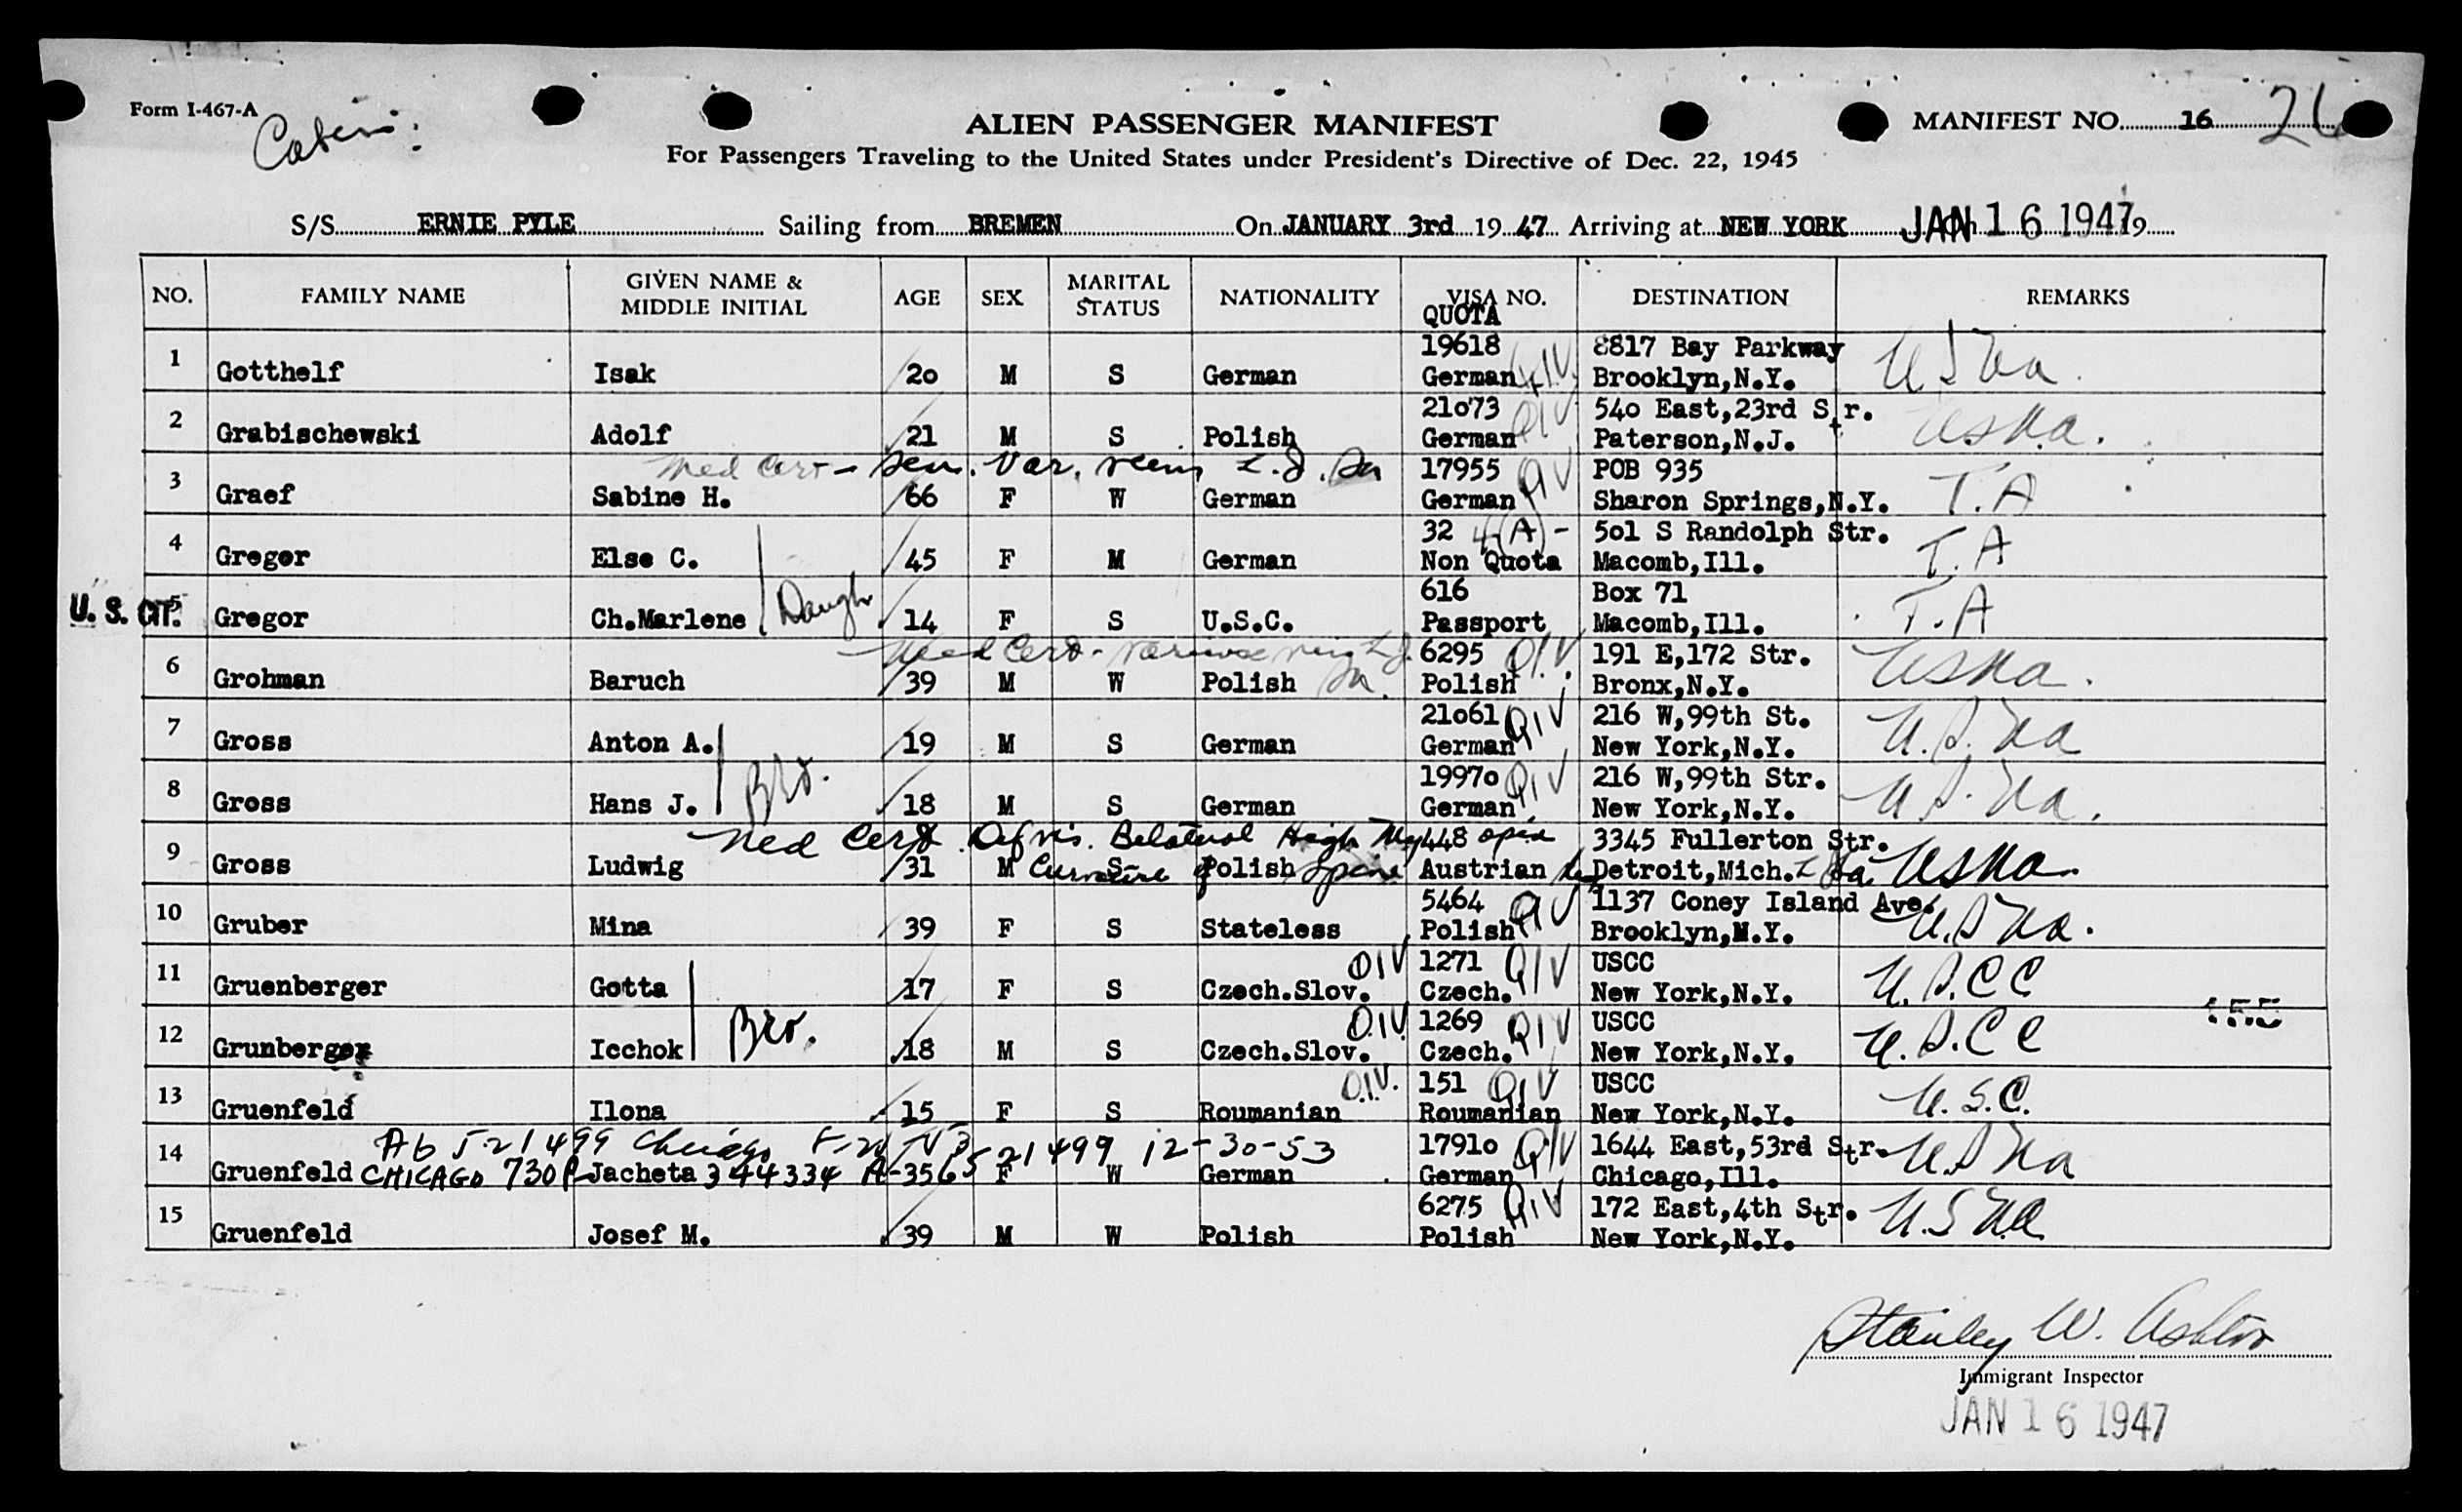 Form I-467-A
ALIEN PASSENGER MANIFEST
MANIFEST NO. 16
For Passengers Traveling to the United States under President's Directive of Dec. 22, 1945
S/S ERNIE PYLE Sailing from BREMEN On JANUARY 3rd 19 47 Arriving at NEW YORK JAN 16 1947 19
NO. FAMILY NAME GIVEN NAME & MIDDLE INITIAL AGE SEX MARITAL STATUS NATIONALITY VISA NO. QUOTA DESTINATION REMARKS
19618 8817 Bay Parkway
1 Gotthelf Isak 20 M S German German QIV Brooklyn,N.Y. USNA
21o73 QIV 54o East,23rd Str.
2 Grabischewski Adolf 21 M S Polish German Paterson,N.J. USNA.
Med Cert - Var. veins 17955 QIV POB 935
3 Graef Sabine H. 66 F W German German Sharon Springs,N.Y. T.A
32 4(A)- 5o1 S Randolph Str.
4 Gregor Else C. 45 F M German Non Quota Macomb,Ill. T.A
616 Box 71
U. S. CIT. 5 Gregor Ch.Marlene Daugh 14 F S U.S.C. Passport Macomb,Ill. T.A
Med Cert - Varicose veins 6295 QIV 191 E,172 Str.
6 Grohman Baruch 39 M W Polish Polish Bronx,N.Y. USNA.
21o61 QIV 216 W,99th St.
7 Gross Anton A. 19 M S German German New York,N.Y. U.S.NA
1997o QIV 216 W,99th Str.
8 Gross Hans J. Bro. 18 M S German German New York,N.Y. U.S.NA.
Med Cert. Def vis. Bilateral High 448 3345 Fullerton Str.
9 Gross Ludwig 31 M S Curvature of Polish Spine Austrian Detroit,Mich. USNA.
5464 QIV 1137 Coney Island Ave.
10 Gruber Mina 39 F S Stateless Polish Brooklyn,N.Y. U.S NA.
QIV 1271 QIV USCC
11 Gruenberger Gotta 17 F S Czech.Slov. Czech. New York,N.Y. U.S.CC
QIV 1269 QIV USCC
12 Grunberger Icchok Bro. 18 M S Czech.Slov. Czech. New York,N.Y. U.S.CC
QIV. 151 QIV USCC
13 Gruenfeld Ilona 15 F S Roumanian Roumanian New York,N.Y. U.S.C.
A6 521499 Chicago 21499 12-30-53 1791o QIV 1644 East,53rd Str.
14 Gruenfeld CHICAGO 730 Jacheta 344334 A- 35 65 F W German German Chicago,Ill. U.S NA
6275 QIV 172 East,4th Str.
15 Gruenfeld Josef M. 39 M W Polish Polish New York,N.Y. U.S NA
Stanley W. Ashton
Immigrant Inspector
JAN 16 1947